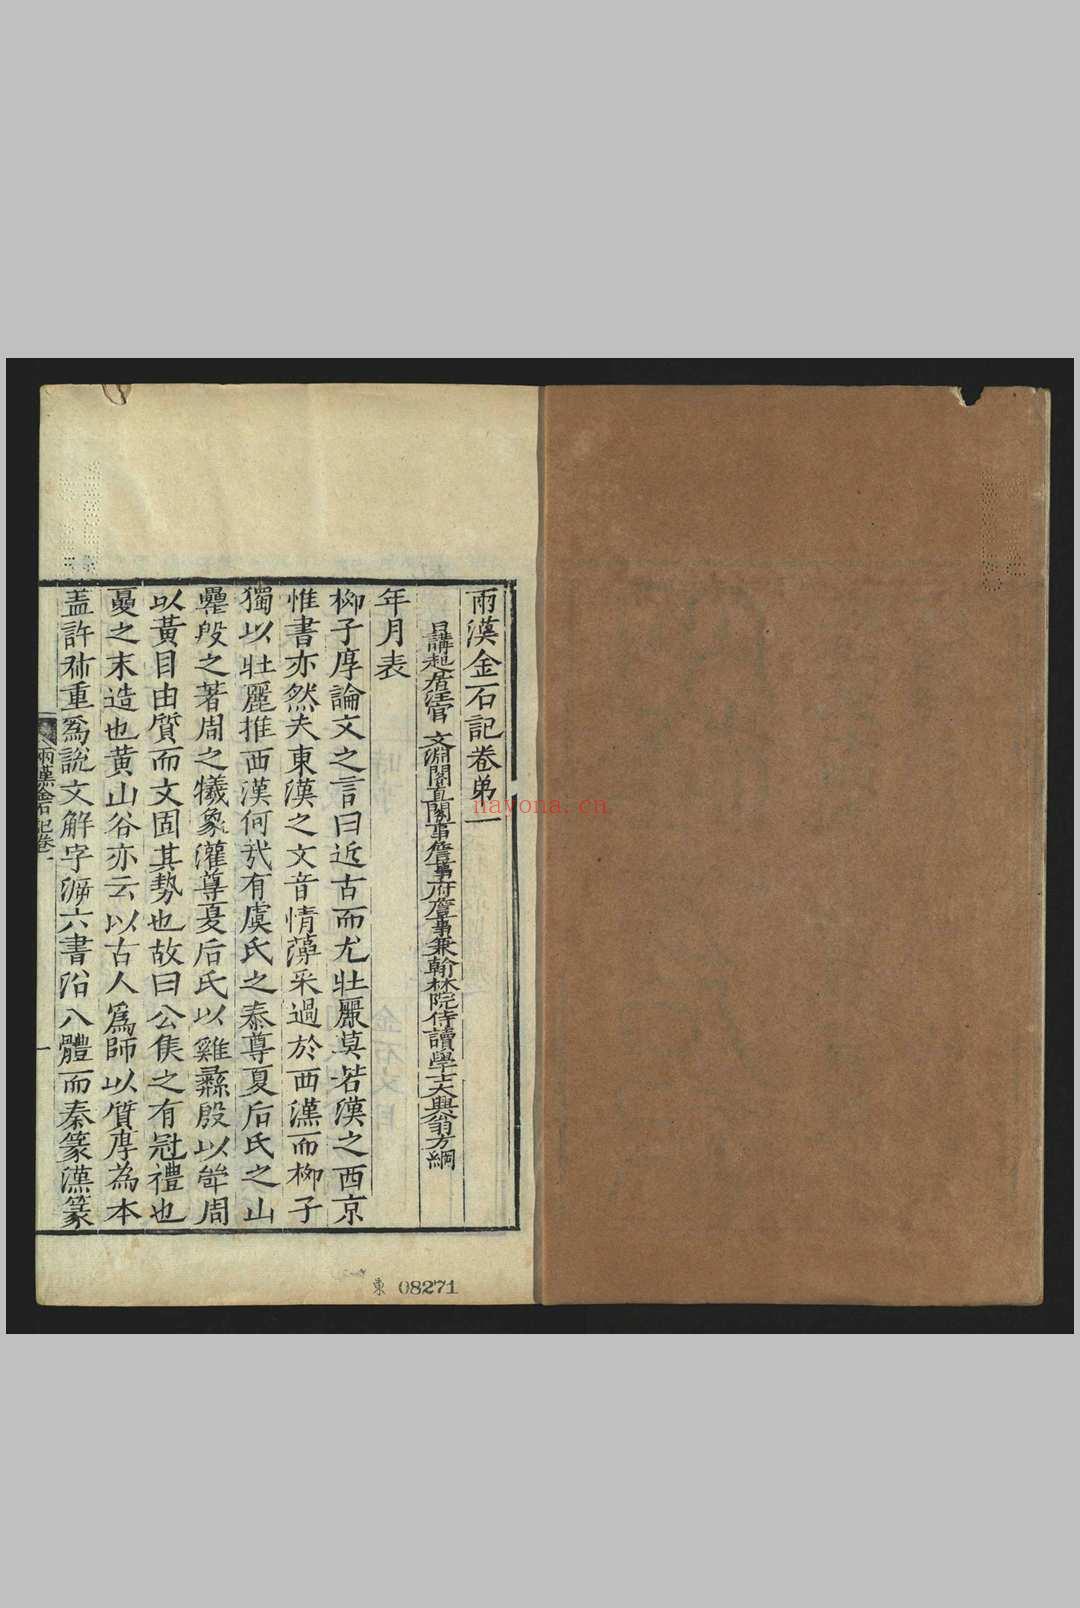 兩漢金石記卷弟一
日講起居注官 文淵閣直閣事詹事府詹事兼翰林院侍讀學士大興翁方綱
年月表
栁子厚論文之言曰近古而尤壯麗莫若漢之西京
惟書亦然夫東漢之文音情藻采過於西漢而栁子
獨以壯麗推西漢何㢤有虞氏之泰尊夏后氏之山
罍殷之著周之犧象灌尊夏后氏以雞彝殷以斝周
以黃目由質而文固其勢也故曰公矦之有冠禮也
夏之末造也黃山谷亦云以古人爲師以質厚為本
葢許祭重爲說文解字㴑六書沿八體而秦篆漢篆
兩漢金石記卷一
一
東 08271
nayona.cn